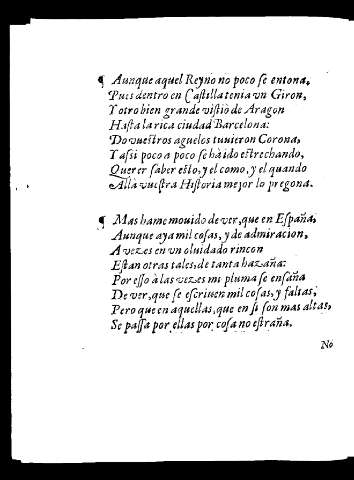 ¶ Aunque aquel Reyno no poco se entona,
Pues dentro en Castilla tenia vn Giron,
Y otro bien grande vistiò de Aragon
Hasta la rica ciudad Barcelona:
Do vuestros aguelos tuuieron Corona,
Y assi poco a poco se hà ido estrechando,
Querer saber esto, y el como, y el quando
Allà vuestra Historia mejor lo pregona.
¶ Mas hame mouido de ver, que en España,
Aunque aya mil cosas, y de admiracion,
A vezes en vn oluidado rincon
Estan otras tales, de tanta hazaña:
Por esso à las vezes mi pluma se ensaña
De ver, que se escriuen mil cosas, y faltas;
Pero que en aquellas, que en si son mas altas,
Se passa por ellas por cosa no estraña.
No